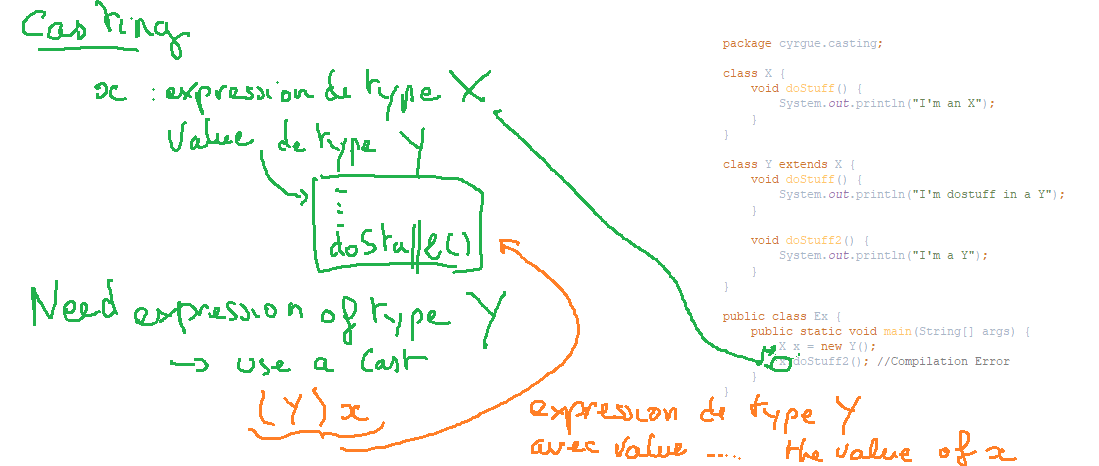 Casting
x : expression de type X
Value de type Y
doStuff2()
Need expression of type Y
→ use a Cast
(Y) x
expression de type Y
avec value .... the value of x
package cyrgue.casting;
class X {
void doStuff() {
System.out.println("I'm an X");
}
}
class Y extends X {
void doStuff() {
System.out.println("I'm dostuff in a Y");
}
void doStuff2() {
System.out.println("I'm a Y");
}
}
public class Ex {
public static void main(String[] args) {
X x = new Y();
x.doStuff2(); //Compilation Error
}
}